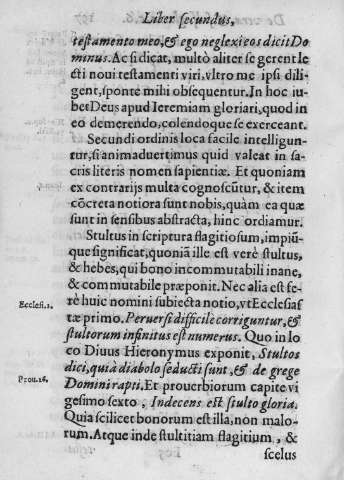 Liber secundus,
testamento meo, & ego neglexi eos dicit Do
minus. Ac si dicat, multò aliter se gerent le
cti noui testamenti viri, vltro me ipsi dili
gent, sponte mihi obsequentur. In hoc iu-
bet Deus apud Ieremiam gloriari, quod in
eo demerendo, colendoque se exerceant.
Secundi ordinis loca facile intelligun-
tur, si animaduertimus quid valeat in sa-
cris literis nomen sapientiæ. Et quoniam
ex contrarijs multa cognoscūtur, & item
cōcreta notiora sunt nobis, quàm ea quæ
sunt in sensibus abstracta, hinc ordiamur.
Stultus in scriptura flagitiosum, impiū-
que significat, quoniā ille est verè stultus,
& hebes, qui bono incommutabili inane,
& commutabile præponit. Nec alia est fe-
rè huic nomini subiecta notio, vt Ecclesias
Ecclesi.1.
tæ primo. Peruersi difficile corriguntur, &
stultorum infinitus est numerus. Quo in lo
co Diuus Hieronymus exponit, Stultos
dici, quià diabolo seducti sunt, & de grege
Prou.26.
Domini rapti. Et prouerbiorum capite vi
gesimo sexto, Indecens est stulto gloria.
Quia scilicet bonorum est illa, non malo-
rum. Atque inde stultitiam flagitium, &
scelus